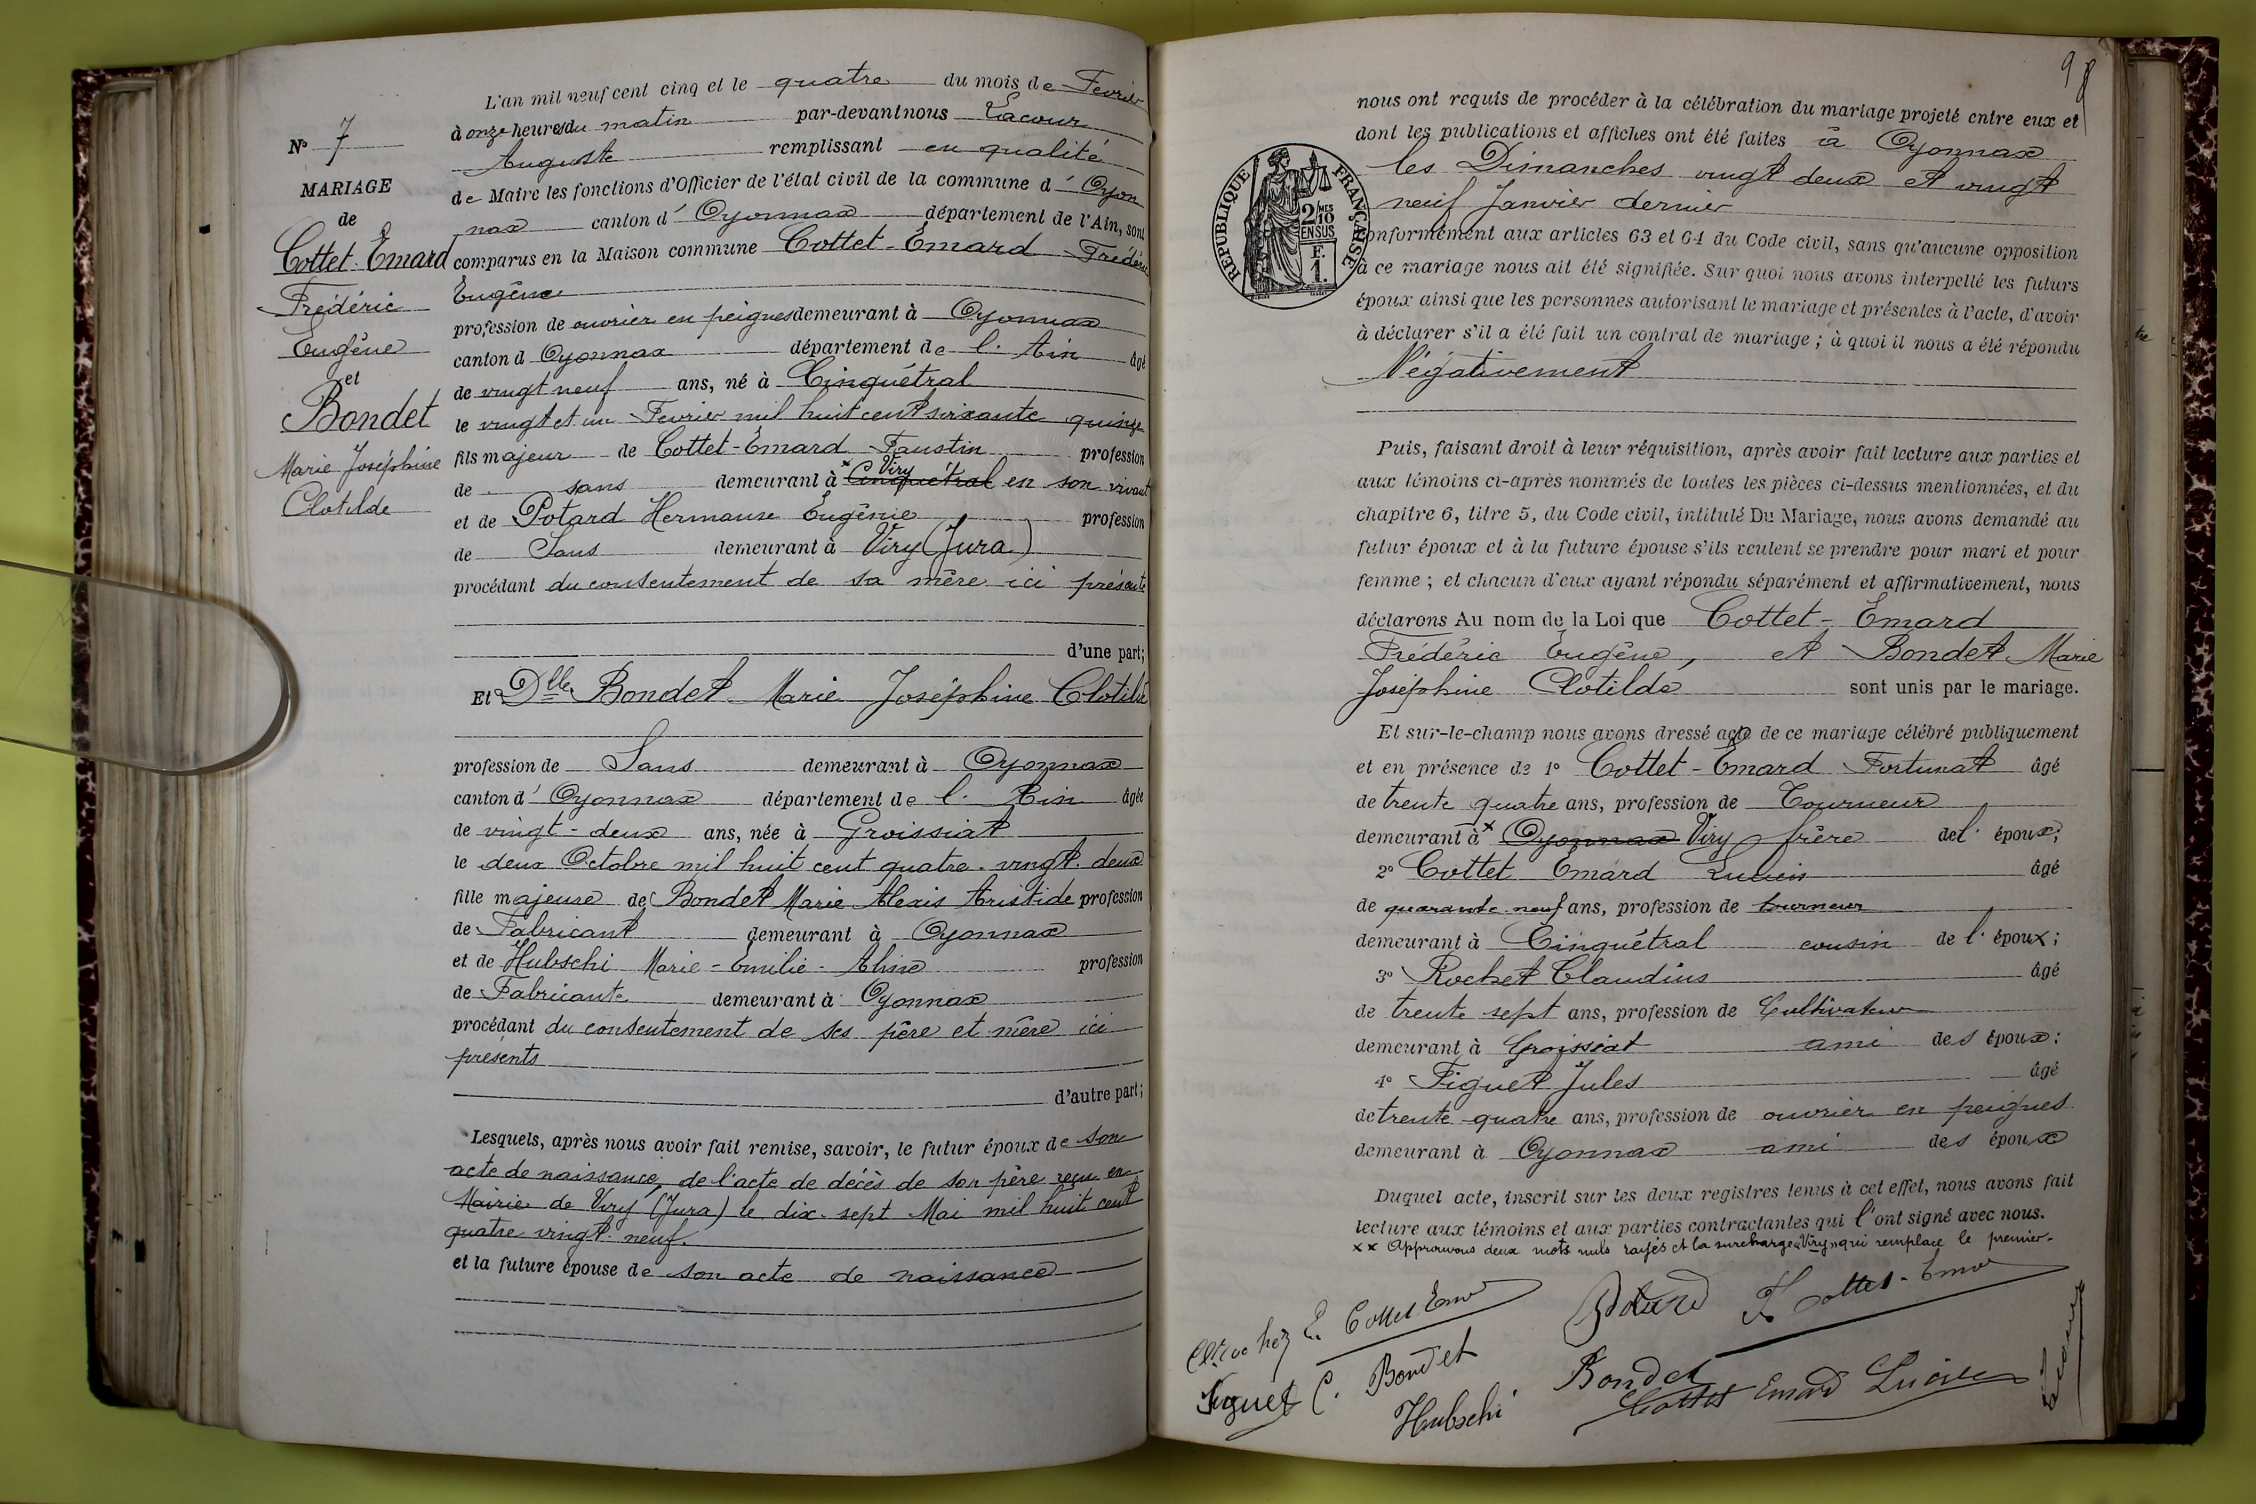 L'an mil neuf cent cinq et le quatre du mois de Fevrier
à onze heures du matin par-devant nous Lacour
Auguste remplissant en qualité
de Maire les fonctions d'Officier de l'état civil de la commune d' Oyon
nax canton d' Oyonnax département de l'Ain, sont
comparus en la Maison commune Cottet-Émard Frédéric
Eugène
profession de ouvrier en peignes demeurant à Oyonnax
canton d Oyonnax département de l'Ain âgé
de vingt neuf ans, né à Cinquétral
le vingt et un Fevrier mil huit cent soixante quinze
fils majeur de Cottet-Émard Faustin profession
de sans demeurant à × Cinquétral Viry en son vivant
et de Potard Hermance Eugénie profession
de Sans demeurant à Viry (Jura)
procédant du consentement de sa mère ici présente
d'une part;
Et Dlle Bondet Marie Joséphine Clotilde
profession de Sans demeurant à Oyonnax
canton d' Oyonnax département de l'Ain âgée
de vingt-deux ans, née à Groissiat
le deux Octobre mil huit cent quatre-vingt-deux
fille majeure de Bondet Marie Alexis Aristide profession
de Fabricant demeurant à Oyonnax
et de Hubschi Marie-Émilie-Aline profession
de Fabricante demeurant à Oyonnax
procédant du consentement de ses père et mère ici
présents
d'autre part;
Lesquels, après nous avoir fait remise, savoir, le futur époux de son
acte de naissance, de l'acte de décès de son père reçu en
Mairie de Viry (Jura) le dix-sept Mai mil huit cent
quatre vingt-neuf.
et la future épouse de son acte de naissance
N° 7
MARIAGE
de
Cottet-Émard
Frédéric
Eugène
et
Bondet
Marie Joséphine
Clotilde
98
nous ont requis de procéder à la célébration du mariage projeté entre eux et
dont les publications et affiches ont été faites à Oyonnax
les Dimanches vingt deux et vingt
neuf Janvier dernier
conformément aux articles 63 et 64 du Code civil, sans qu'aucune opposition
à ce mariage nous ait été signifiée. Sur quoi nous avons interpellé les futurs
époux ainsi que les personnes autorisant le mariage et présentes à l'acte, d'avoir
à déclarer s'il a été fait un contrat de mariage; à quoi il nous a été répondu
Négativement
RÉPUBLIQUE FRANÇAISE
2/10MES
EN SUS
F.
1.
Puis, faisant droit à leur réquisition, après avoir fait lecture aux parties et
aux témoins ci-après nommés de toutes les pièces ci-dessus mentionnées, et du
chapitre 6, titre 5, du Code civil, intitulé Du Mariage, nous avons demandé au
futur époux et à la future épouse s'ils veulent se prendre pour mari et pour
femme; et chacun d'eux ayant répondu séparément et affirmativement, nous
déclarons Au nom de la Loi que Cottet-Émard
Frédéric Eugène, et Bondet Marie
Joséphine Clotilde sont unis par le mariage.
Et sur-le-champ nous avons dressé acte de ce mariage célébré publiquement
et en présence de 1° Cottet-Émard Fortunat âgé
de trente quatre ans, profession de Tourneur
demeurant à × Oyonnax Viry frère de l'époux;
2° Cottet Émard Lucien âgé
de quarante neuf ans, profession de tourneur
demeurant à Cinquétral cousin de l'époux;
3° Rochet Claudius âgé
de trente sept ans, profession de Cultivateur
demeurant à Groissiat ami des époux:
4° Figuet Jules âgé
de trente quatre ans, profession de ouvrier en peignes
demeurant à Oyonnax ami des époux
Duquel acte, inscrit sur les deux registres tenus à cet effet, nous avons fait
lecture aux témoins et aux parties contractantes qui l'ont signé avec nous.
×× Approuvons deux mots nuls rayés et la surcharge "Viry" qui remplace le premier.
E. Cottet Emard
Potard
F Cottet-Emard
Figuet
C. Bondet
Bondet
Hubschi
Cottet Emard Lucien
Lacour